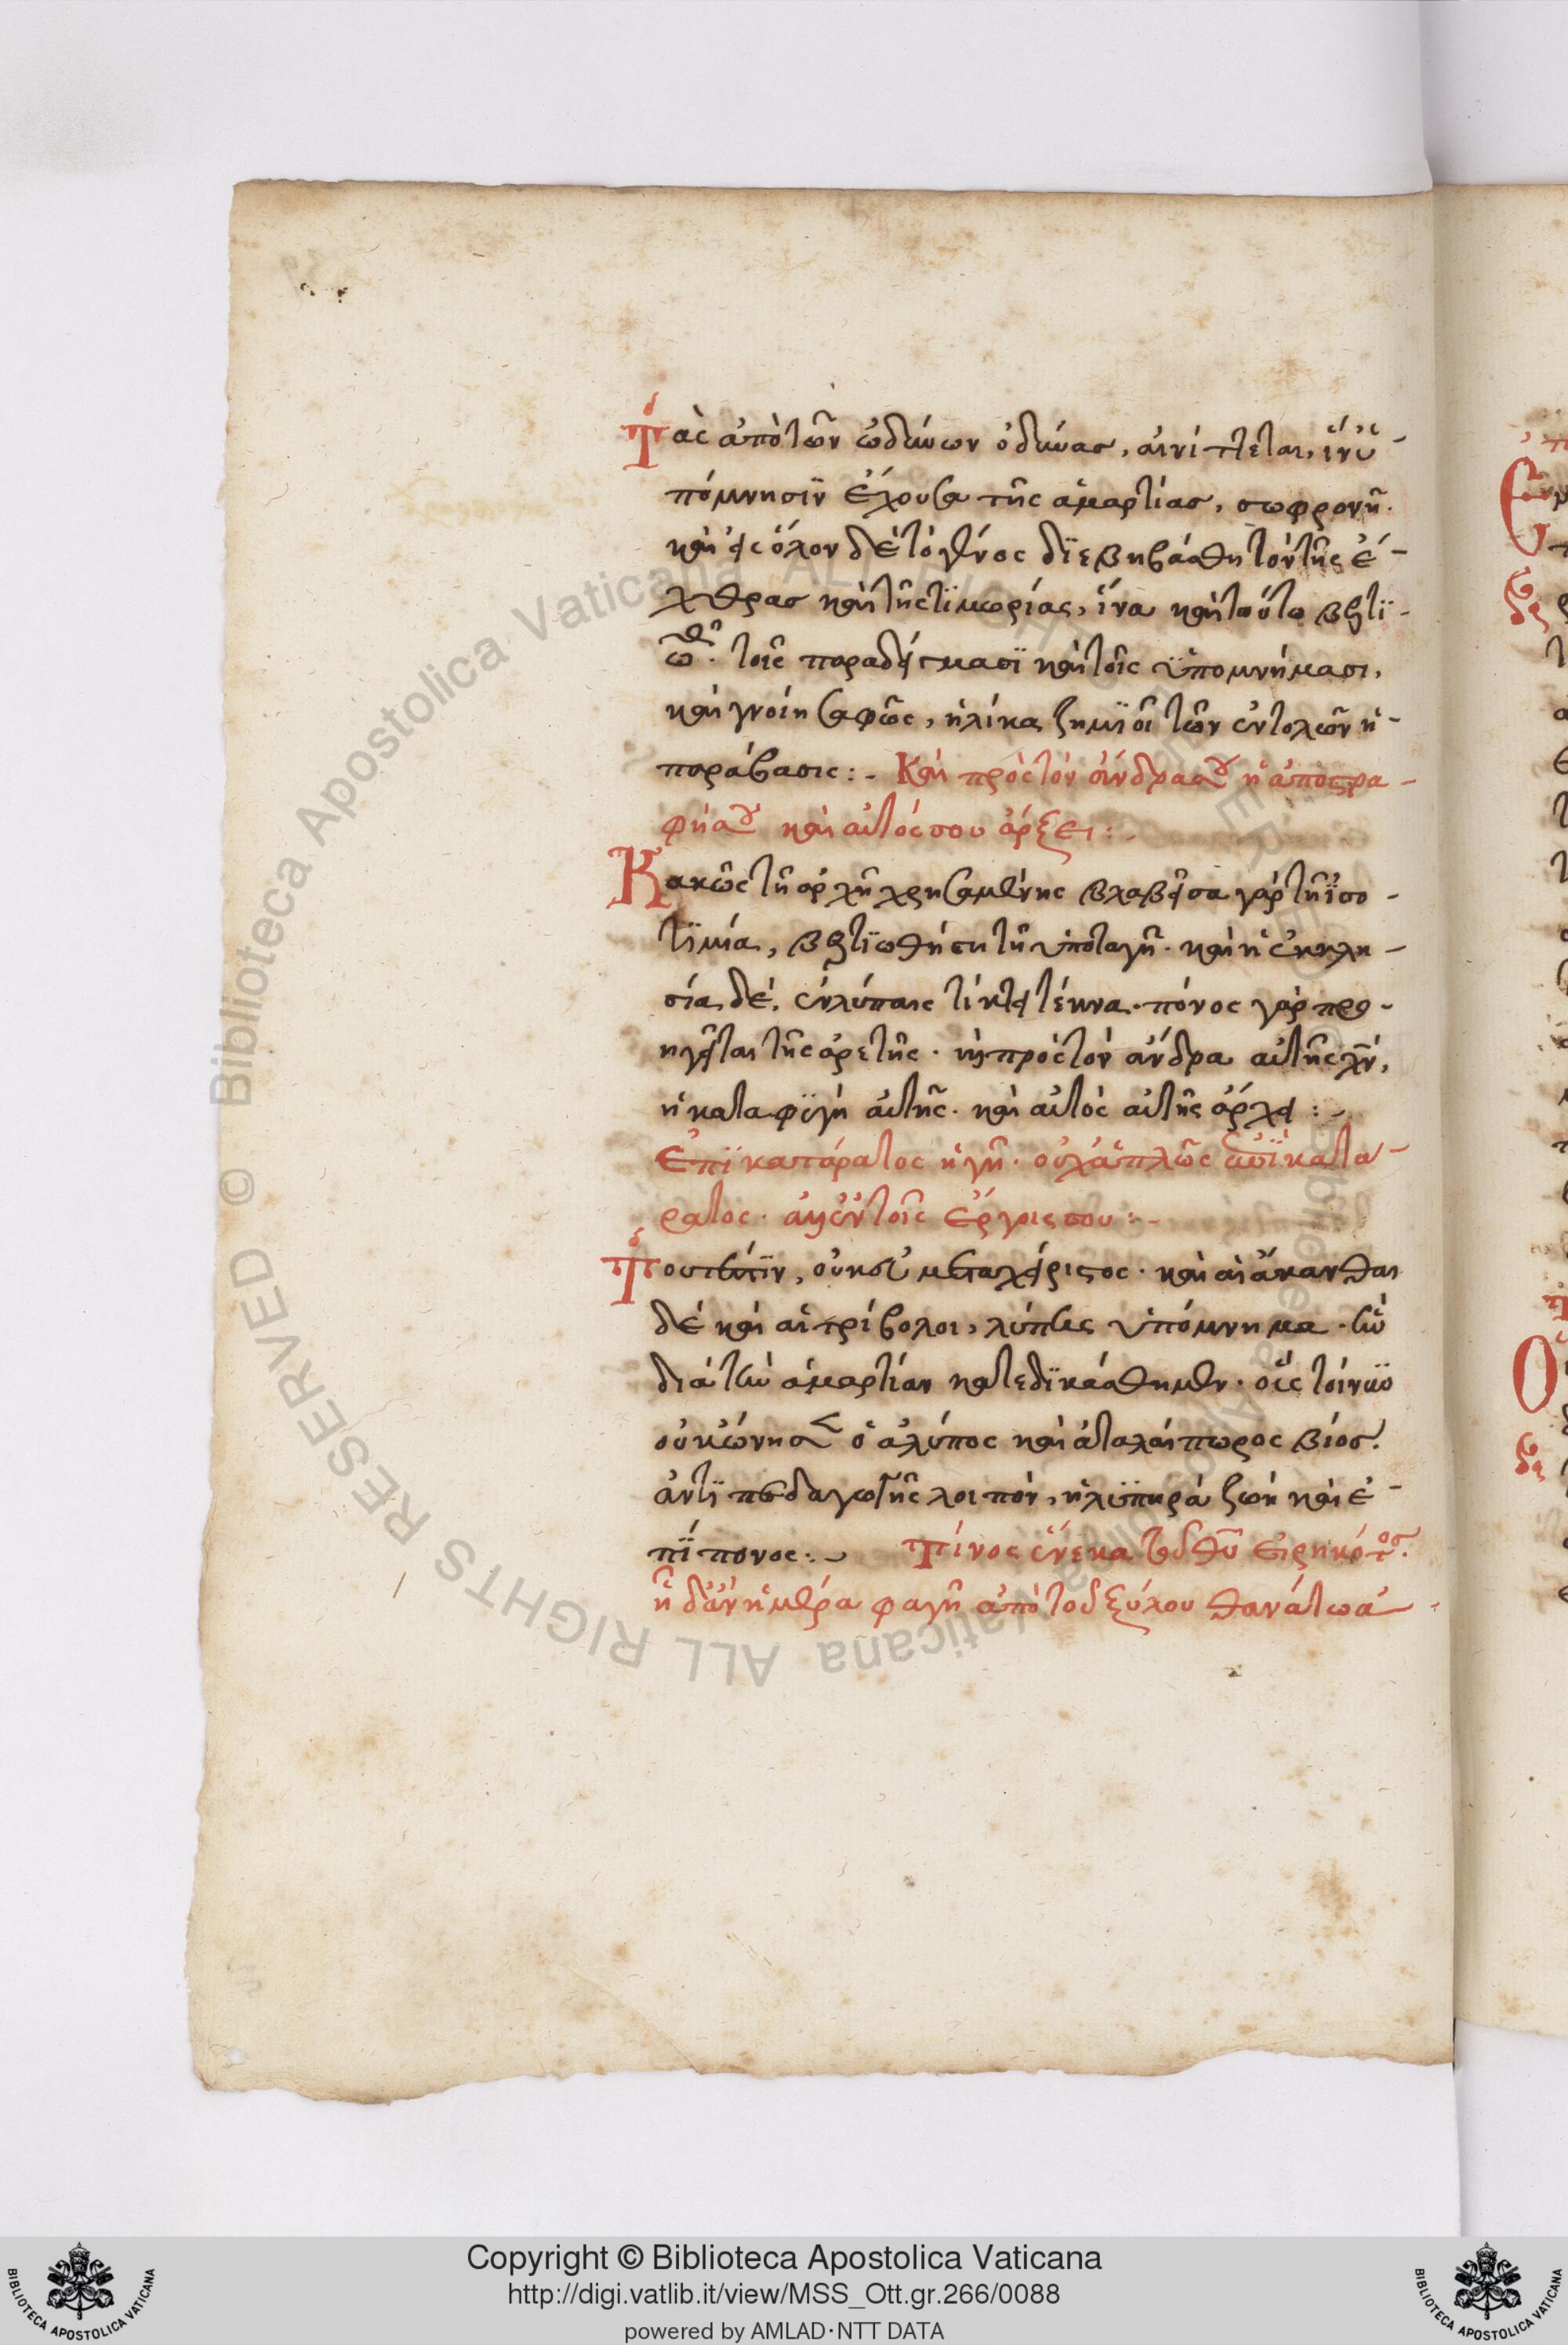 Τὰς ἀπὸ τῶν ὠδίνων ὀδύνας, αἰνίττεται, ἵν' ὑ-
πόμνησϊν ἔχουσα τῆς ἁμαρτίας, σωφρονῆ.
καὶ εἰς ὅλον δὲ τὸ γένος δϊεβηβάσθη τὸν τῆς ἔ-
χθρας καὶ τῆς τϊμωρίας, ἵνα καὶ τούτω βελτϊ-
ωθῆ. τοῖς παραδείγμασϊ καὶ τοῖς ὑπομνήμασι,
καὶ γνοίη σαφῶς, ἡλίκα ζημϊοῖ τῶν ἐντολῶν ἡ
παράβασις:- Καὶ πρὸς τὸν ἄνδρα σου ἡ ἀποστρα-
φή σου καὶ αὐτός σου ἄρξει:-
Κακῶς τῆ ἀρχῆ χρησαμένης βλαβεῖσα γὰρ τῆ ἰσο-
τϊμία, βελτϊωθήση τῆ ὑποταγῆ. καὶ ἡ ἐκκλη-
σία δέ. ἐν λύπαις τίκτει τέκνα. πόνος γὰρ προ-
ηγεῖται τῆς ἀρετῆς. καὶ πρὸς τὸν ἄνδρα αὐτῆς χν,
ἡ καταφϋγὴ αὐτῆς. καὶ αὐτὸς αὐτῆς ἄρχει:-
Ἐπϊκαταάρατος ἡ γῆ. οὐχ ἁπλῶς ἐπϊκατα-
ρατος. ἀλλ' ἐν τοῖς ἔργοις σου:-
Τουτέστϊν, οὐκ εὐμεταχείριστος. καὶ αἱ ἄκανθαι
δὲ καὶ αἱ τρίβολοι, λύπης ὑπόμνημα. ἣν
διὰ τὴν ἁμαρτίαν κατεδϊκάσθημεν. οἷς τοίνυν
οὐκ ὤνησεν ὁ ἄλυπος καὶ ἀταλαίπωρος βίος.
ἀντϊ παιδαγωγῆς λοιπὸν, ἡ λϋπηρὰ ζωὴ καὶ ἐ-
πϊπονος:- Τίνος ἕνεκα τοῦ θυ εἰρηκότος.
ἧ δ' ἂν ἡμέρα φαγῆ ἀπὸ τοῦ ξύλου θανάτω ἀ-
Copyright © Biblioteca Apostolica Vaticana
http://digi.vatlib.it/view/MSS_Ott.gr.266/0088
powered by AMLAD·NTT DATA